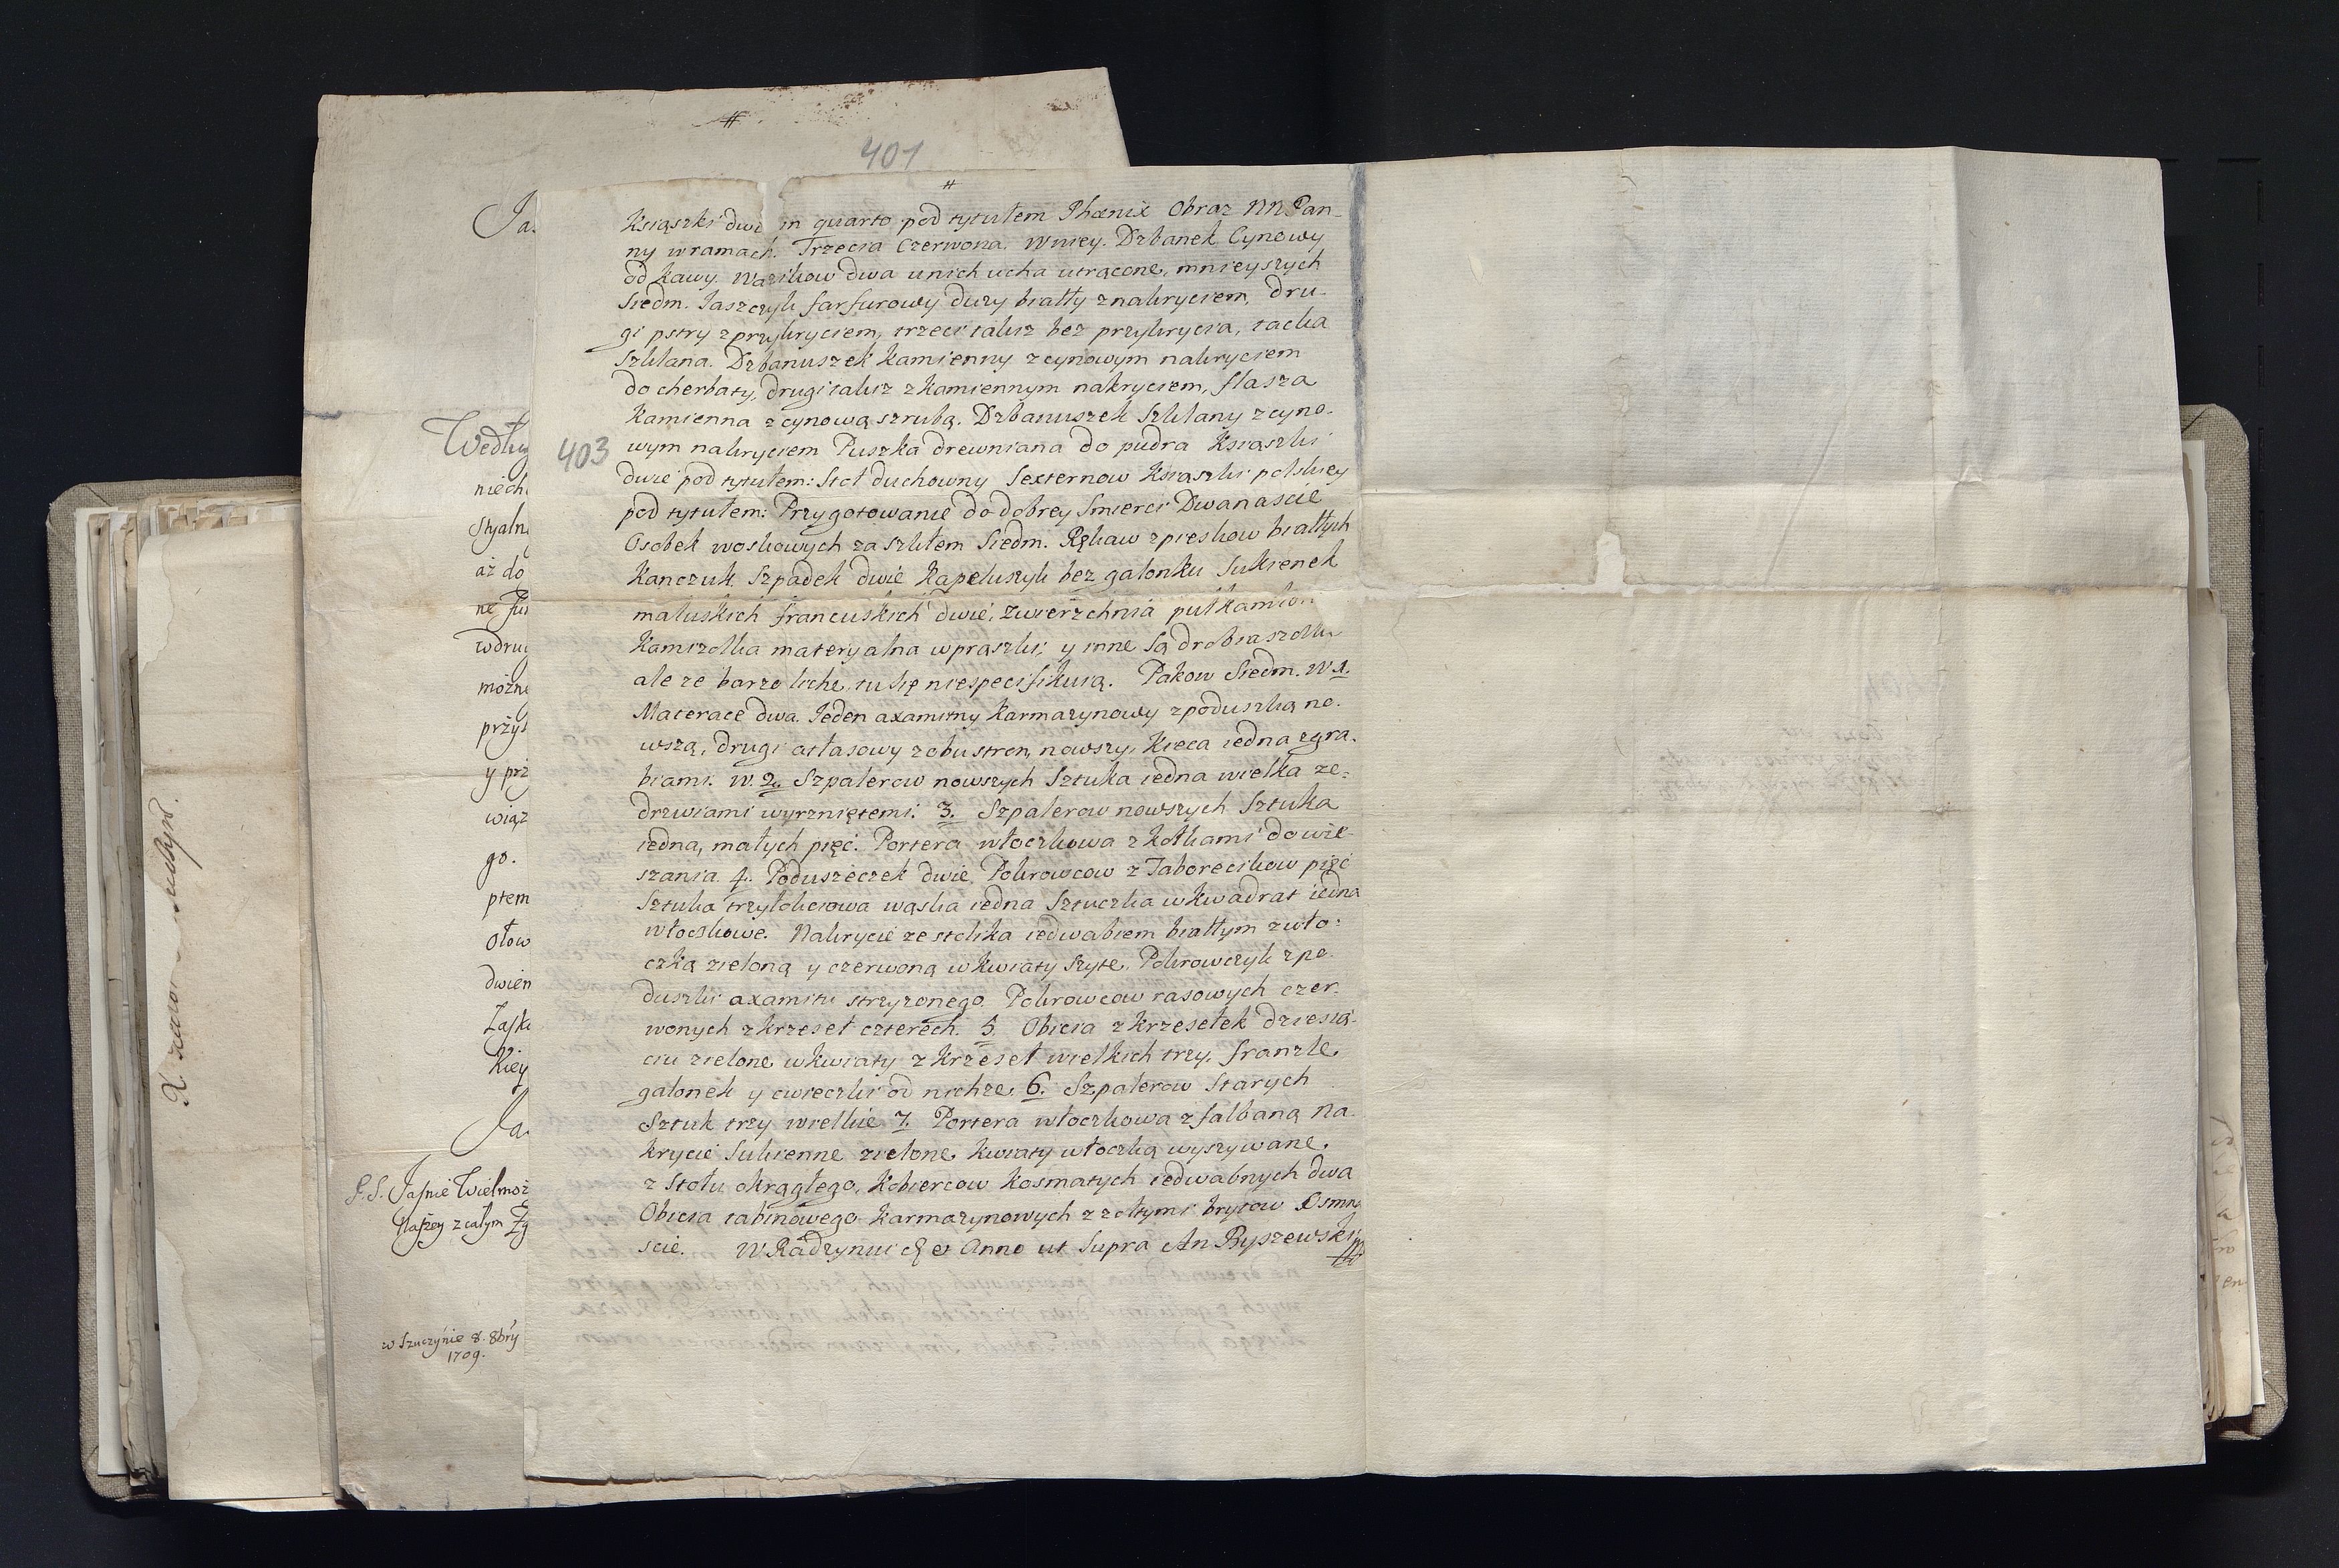 #
401
Ja
Według
niech
Styaln
aż do
ne Fun
wdrug
możne
przył
y prz
wiąz
go.
ptem
ołow
dwien
Zask
Kiey
Ja
S. S. Jaśnie Wielmoż
Naszey z całym Zg
w Szuczynie 8. 8bry
1709.
#
403
Ksiąszki dwi in quarto pod tytułem Phœnix Obraz NN. Pan-
ny w ramach. Trzecia Czerwona. Wniey. Dzbanek Cynowy
od kawy. Wazikow dwa unich ucha utrącone, mnieyszych
Siedm. Jaszczyk farfurowy duzy białły znakryciem, dru-
gi pstry zprzykryciem, trzeci takisz bez przykrycia, tacka
Szklana. Dzbanuszek kamienny zcynowym nakryciem
do cherbaty, drugi takisz zkamiennym nakryciem, flasza
Kamienna zcynową szrubą. Dzbanuszek Szklany zcyno-
wym nakryciem Puszka drewniana do pudra Ksiąszki
dwie pod tytułem: Stoł duchowny Sexternow Ksiąszki polskiey
pod tytułem: Przygotowanie do dobrey Smierci Dwanascie
Osobek woskowych za szkłem Siedm. Rękaw zpieskow białłych
Kanczuk Szpadek dwie Kapeluszyk bez galonku Sukienek
maluskich francuskich dwie, zwierzchnia
Kamizolka materyalna wprąszki, y inne są drobiaszolki
ale ze barzo liche, tu się niespecifikuią. Pakow Siedm. W 1.
Materace dwa. Jeden axamitny Karmazynowy zpoduszką no-
wszą, drugi atłasowy zobustron, nowszy, Kieca iedna zgra-
biami. w. 2. Szpalerow nowszych Sztuka iedna wielka ze-
drzwiami wyrznięte­mi. 3. Szpalerow nowszych Sztuka
iedna, małych pięć. Portera włoczkowa z Kołkami do wie-
szania. 4. Poduszeczek dwie, Pokrowcow z Taborecikow pięć
Sztuka trzyłokciowa wąska iedna Sztuczka wkwadrat iedna
włoczkowe. Nakrycie ze stolika iedwabiem białłym zwło-
czką zieloną y czerwoną wkwiaty szyte, Pokrowczyk zpo-
duszki axamitu strzyzonego. Pokrowcow rasowych czer-
wonych zkrzeseł czterech. 5. Obicia zkrzesełek dziesią-
ciu zielone wkwiaty z krzeseł wielkich trzy, franzle,
galonek y cwieczki od nichze. 6. Szpalerow Starych
Sztuk trzy wielkie 7. Portera włoczkowa zfalbaną Na-
krycie Sukienne zielone Kwiaty włoczką wyszywane,
z Stołu okrągłego, Kobiercow Kosmatych iedwabnych dwa
Obicia tabinowego Karmazynowych z zołtymi brytow Osmna-
scie. W Radzyniu Anno ut Supra An Ryszewski